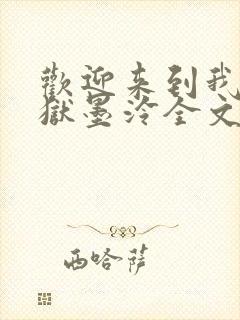 歡迎来到我
獄墨泠全文
西哈萨